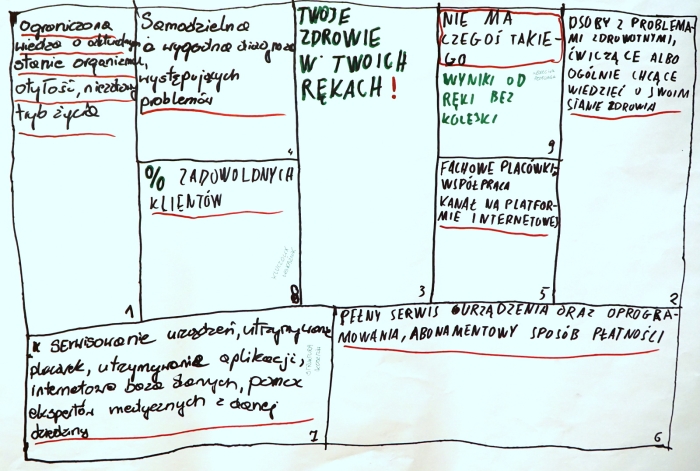 ograniczona
wiedza o aktualnym
stanie organizmu,
otyłość, niezdrowy
tryb życia
1
Samodzielna
a wygodna diagnoza
występujących
problemów
4
% ZADOWOLONYCH
KLIENTÓW
8
TWOJE
ZDROWIE
W TWOICH
RĘKACH!
3
NIE MA
CZEGOŚ TAKIE-
GO
WYNIKI OD
RĘKI BEZ
KOLEJKI
9
FACHOWE PLACÓWKI,
WSPÓŁPRACA
KANAŁ NA PLATFOR-
MIE INTERNETOWEJ
5
OSOBY Z PROBLEMA-
MI ZDROWOTNYMI,
ĆWICZĄCE ALBO
OGÓLNIE CHCĄCE
WIEDZIEĆ O SWOIM
STANIE ZDROWIA
2
SERWISOWANIE urządzeń, utrzymywanie
placówek, utrzymywanie aplikacji,
internetowa baza danych, pomoc
ekspertów medycznych z danej
dziedziny
7
PEŁNY SERWIS URZĄDZENIA ORAZ OPROGRA-
MOWANIA, ABONAMENTOWY SPOSÓB PŁATNOŚCI
6